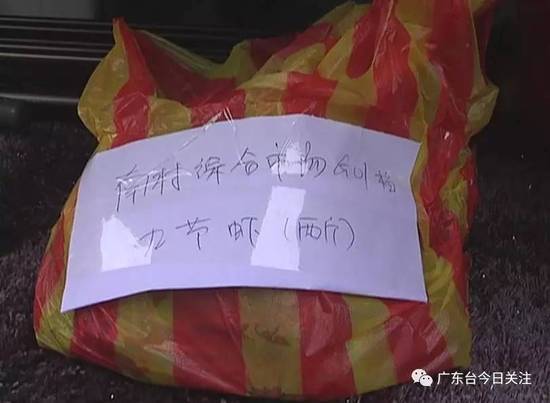 南村综合市场GU1档
九节虾(两斤)
广东台今日关注